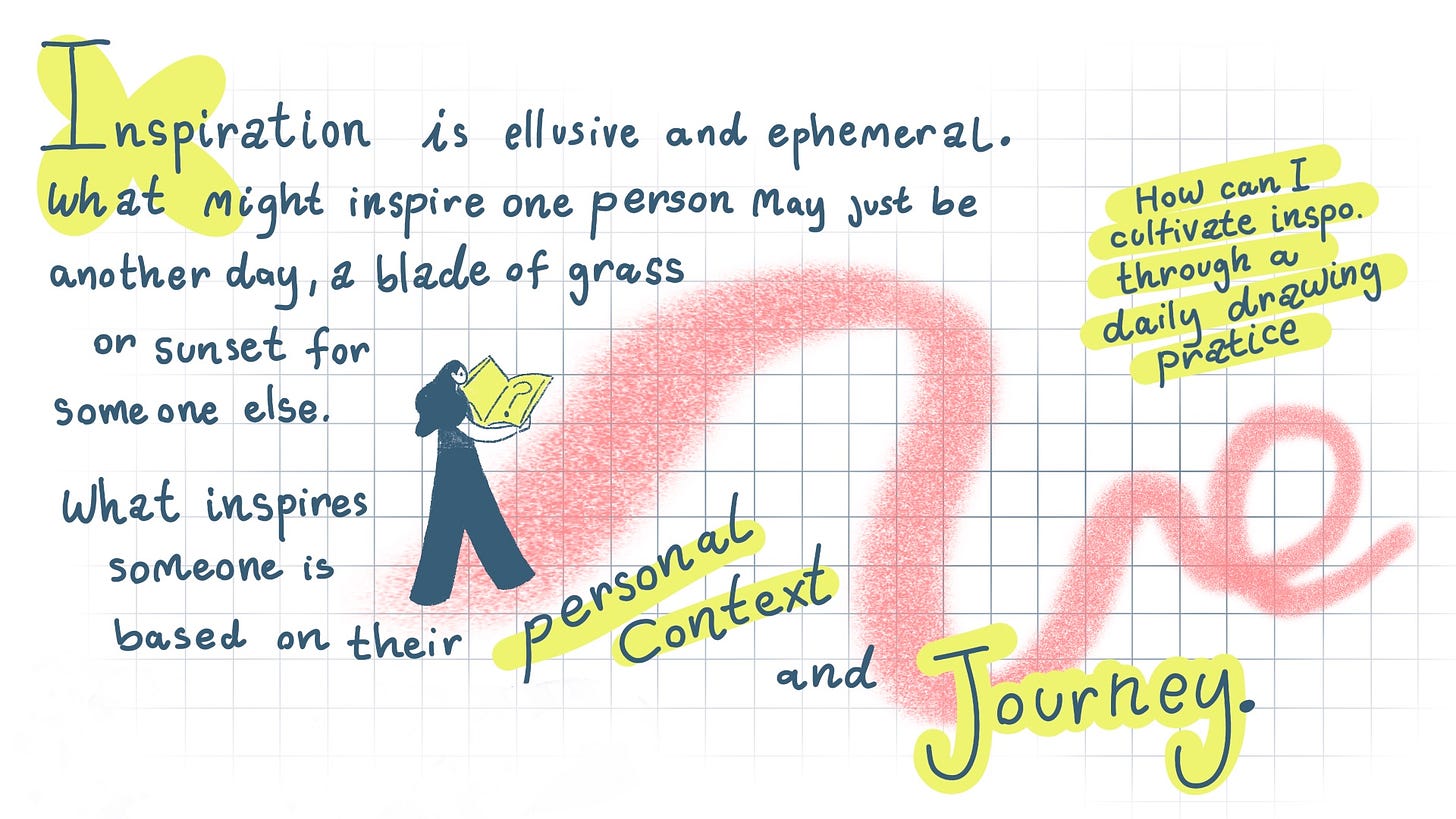 Inspiration is ellusive and ephemeral.
What might inspire one person may just be
another day, a blade of grass
or sunset for
someone else.
What inspires
someone is
based on their
personal
Context
and Journey.
How can I
cultivate inspo.
through a
daily drawing
pratice
?